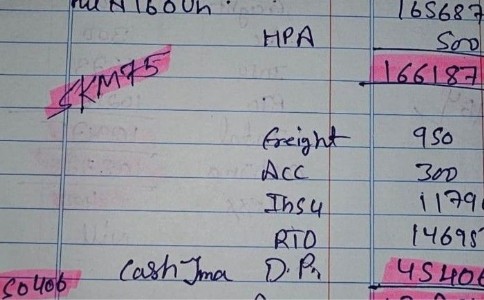 165687
HPA 500
SKM75 166187
Freight 950
Acc 300
Insu 1179
RTO 14695
50406 Cash Jma D.P. 45406